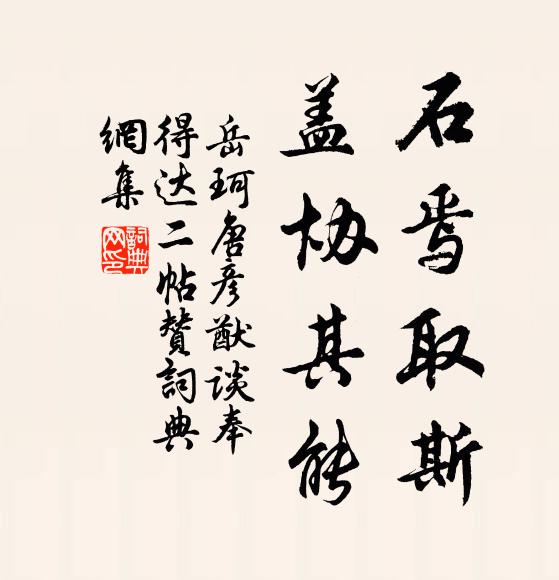 石焉取斯
盖协其能
岳珂唐彦猷谈奉
得达二帖赞词典
網集
詞典網印